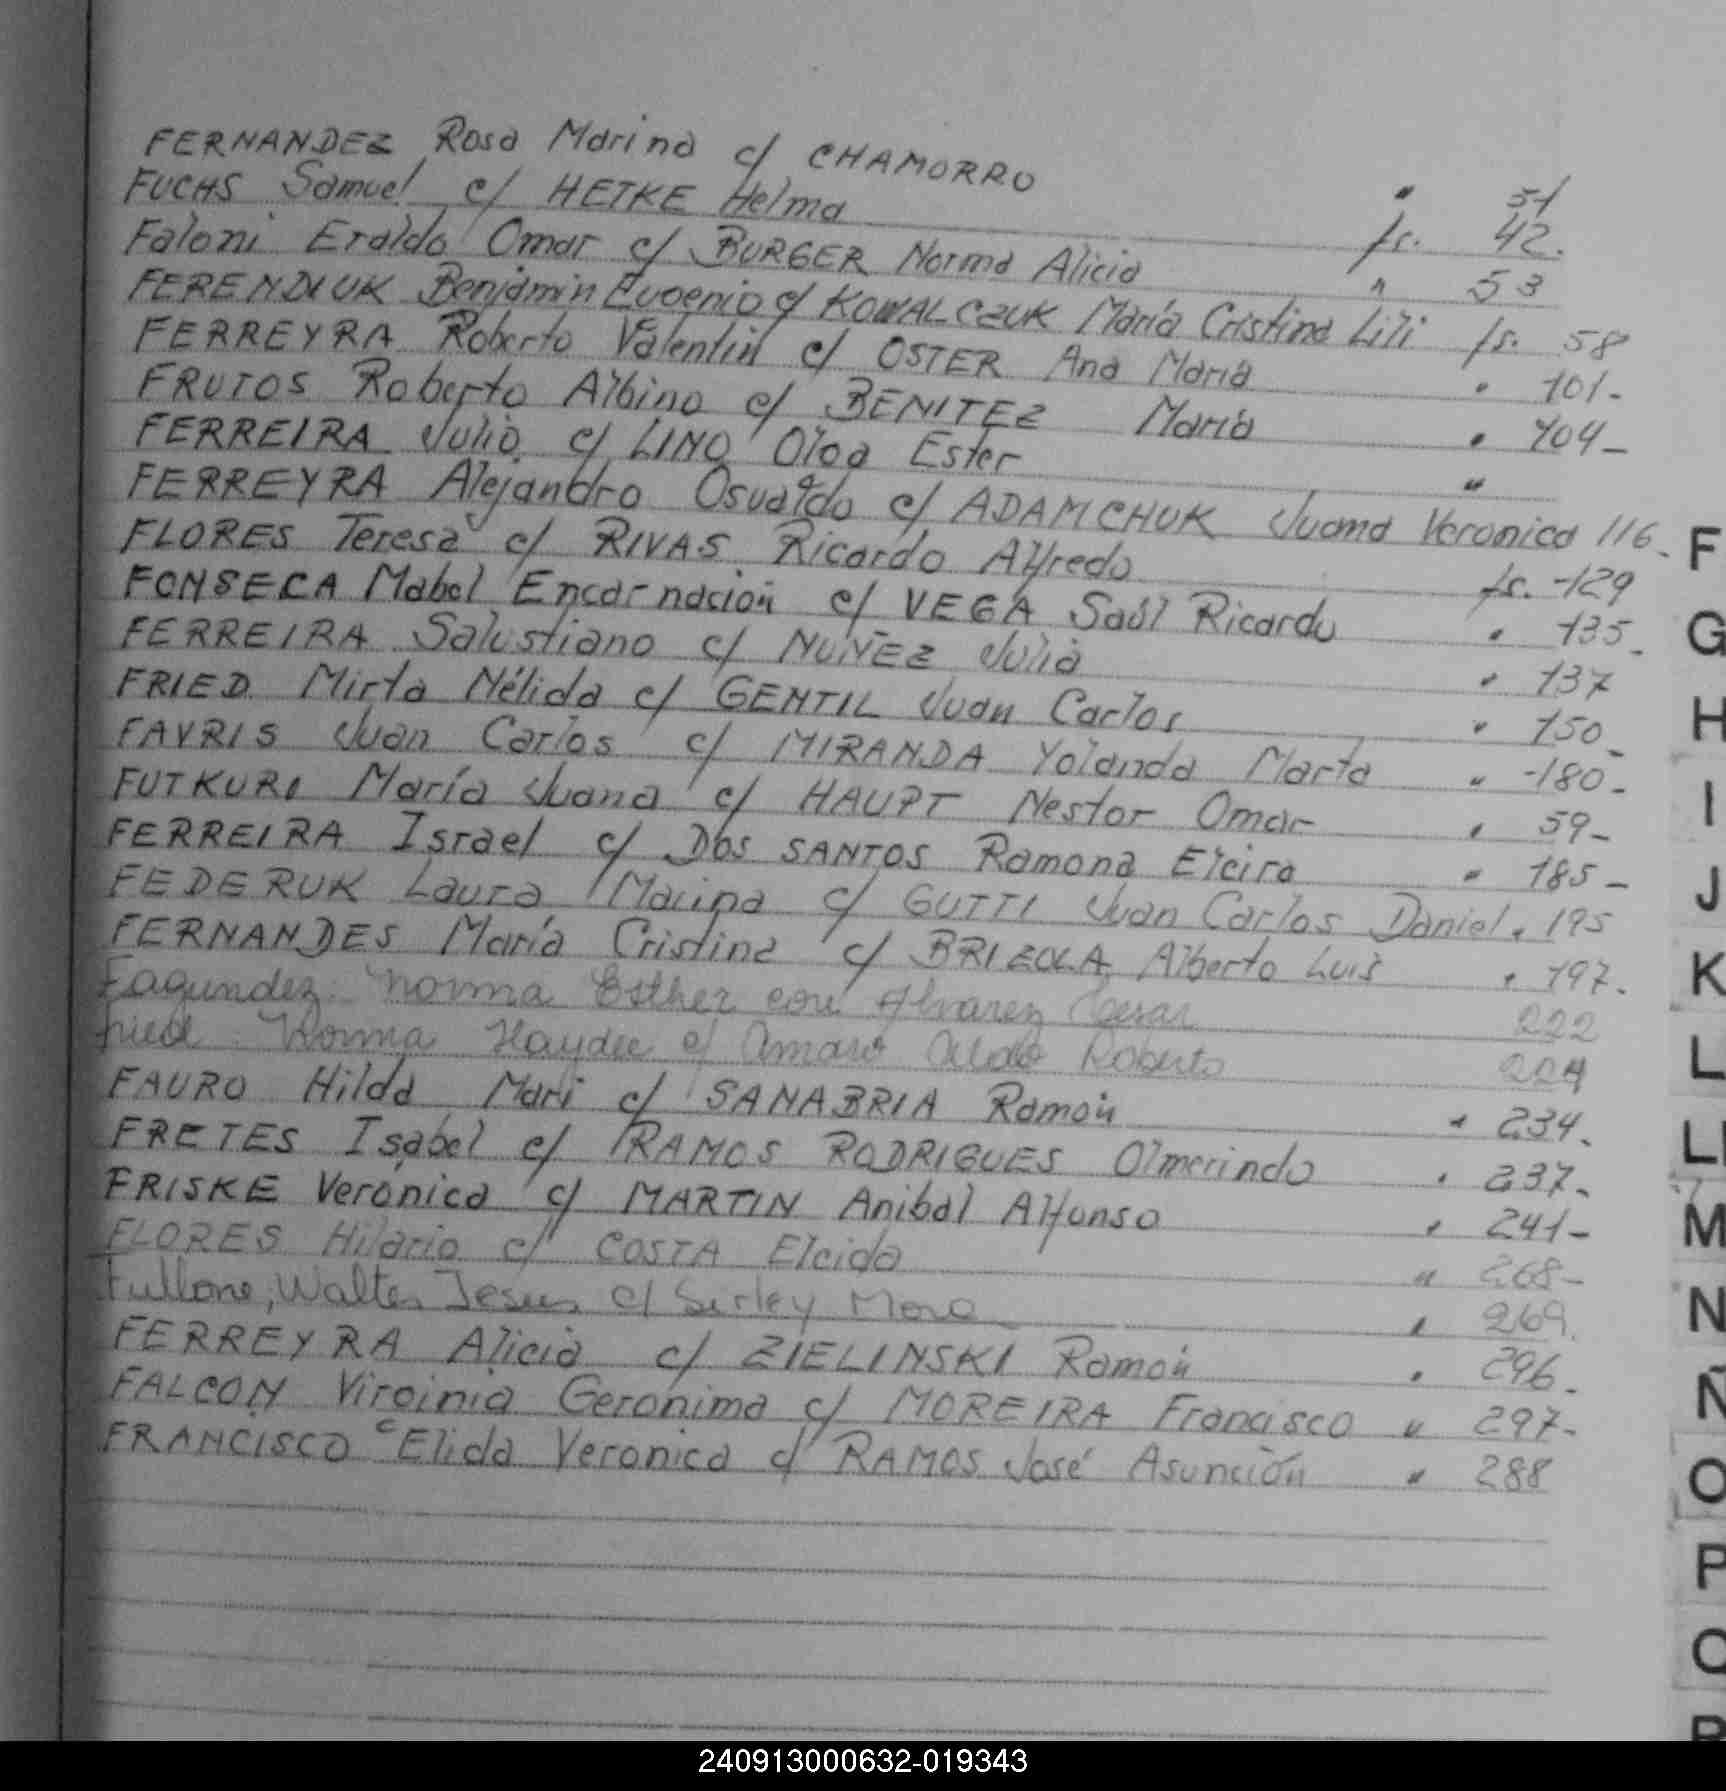 FERNANDEZ Rosa Marina c/ CHAMORRO " 51
FUCHS Samuel c/ HETKE Helma fs. 42.
Faloni Eraldo Omar c/ BURGER Norma Alicia " 53
FERENDIUK Benjamin Eugenio c/ KOWALCZUK María Cristina Lili fs. 58
FERREYRA Roberto Valentin c/ OSTER Ana Maria " 101-
FRUTOS Roberto Albino c/ BENITEZ María " 104-
FERREIRA Julio c/ LINO Olga Ester "
FERREYRA Alejandro Osvaldo c/ ADAMCHUK Juana Veronica 116-
FLORES Teresa c/ RIVAS Ricardo Alfredo fs. -129
FONSECA Mabel Encarnación c/ VEGA Saúl Ricardo " 135-
FERREIRA Salustiano c/ NUÑEZ Julia " 137
FRIED Mirta Nélida c/ GENTIL Juan Carlos " 150-
FAVRIS Juan Carlos c/ MIRANDA Yolanda Marta " -180-
FUTKURI María Juana c/ HAUPT Nestor Omar " 59-
FERREIRA Israel c/ DOS SANTOS Ramona Elcira " 185-
FEDERUK Laura Marina c/ GUTTI Juan Carlos Daniel " 195
FERNANDES María Cristina c/ BRIZOLA Alberto Luis " 197-
Fagundez Norma Esther con Alvarez Cesar 222
Fried Norma Haydee c/ Amaro Aldo Roberto 224
FAURO Hilda Mari c/ SANABRIA Ramón " 234-
FRETES Isabel c/ RAMOS RODRIGUES Olmerindo " 237-
FRISKE Veronica c/ MARTIN Anibal Alfonso " 241-
FLORES Hilario c/ COSTA Elcida " 268-
Fullone, Walter Jesus c/ Serley Mora " 269.
FERREYRA Alicia c/ ZIELINSKI Ramón " 296-
FALCON Virginia Geronima c/ MOREIRA Francisco " 297-
FRANCISCO Elida Veronica c/ RAMOS José Asunción " 288
F
G
H
I
J
K
L
LL
M
N
Ñ
O
P
Q
R
240913000632-019343